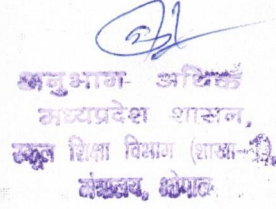 अनुभाग अधिकारी
मध्यप्रदेश शासन,
स्कूल शिक्षा विभाग (शाखा-
मंत्रालय, भोपाल